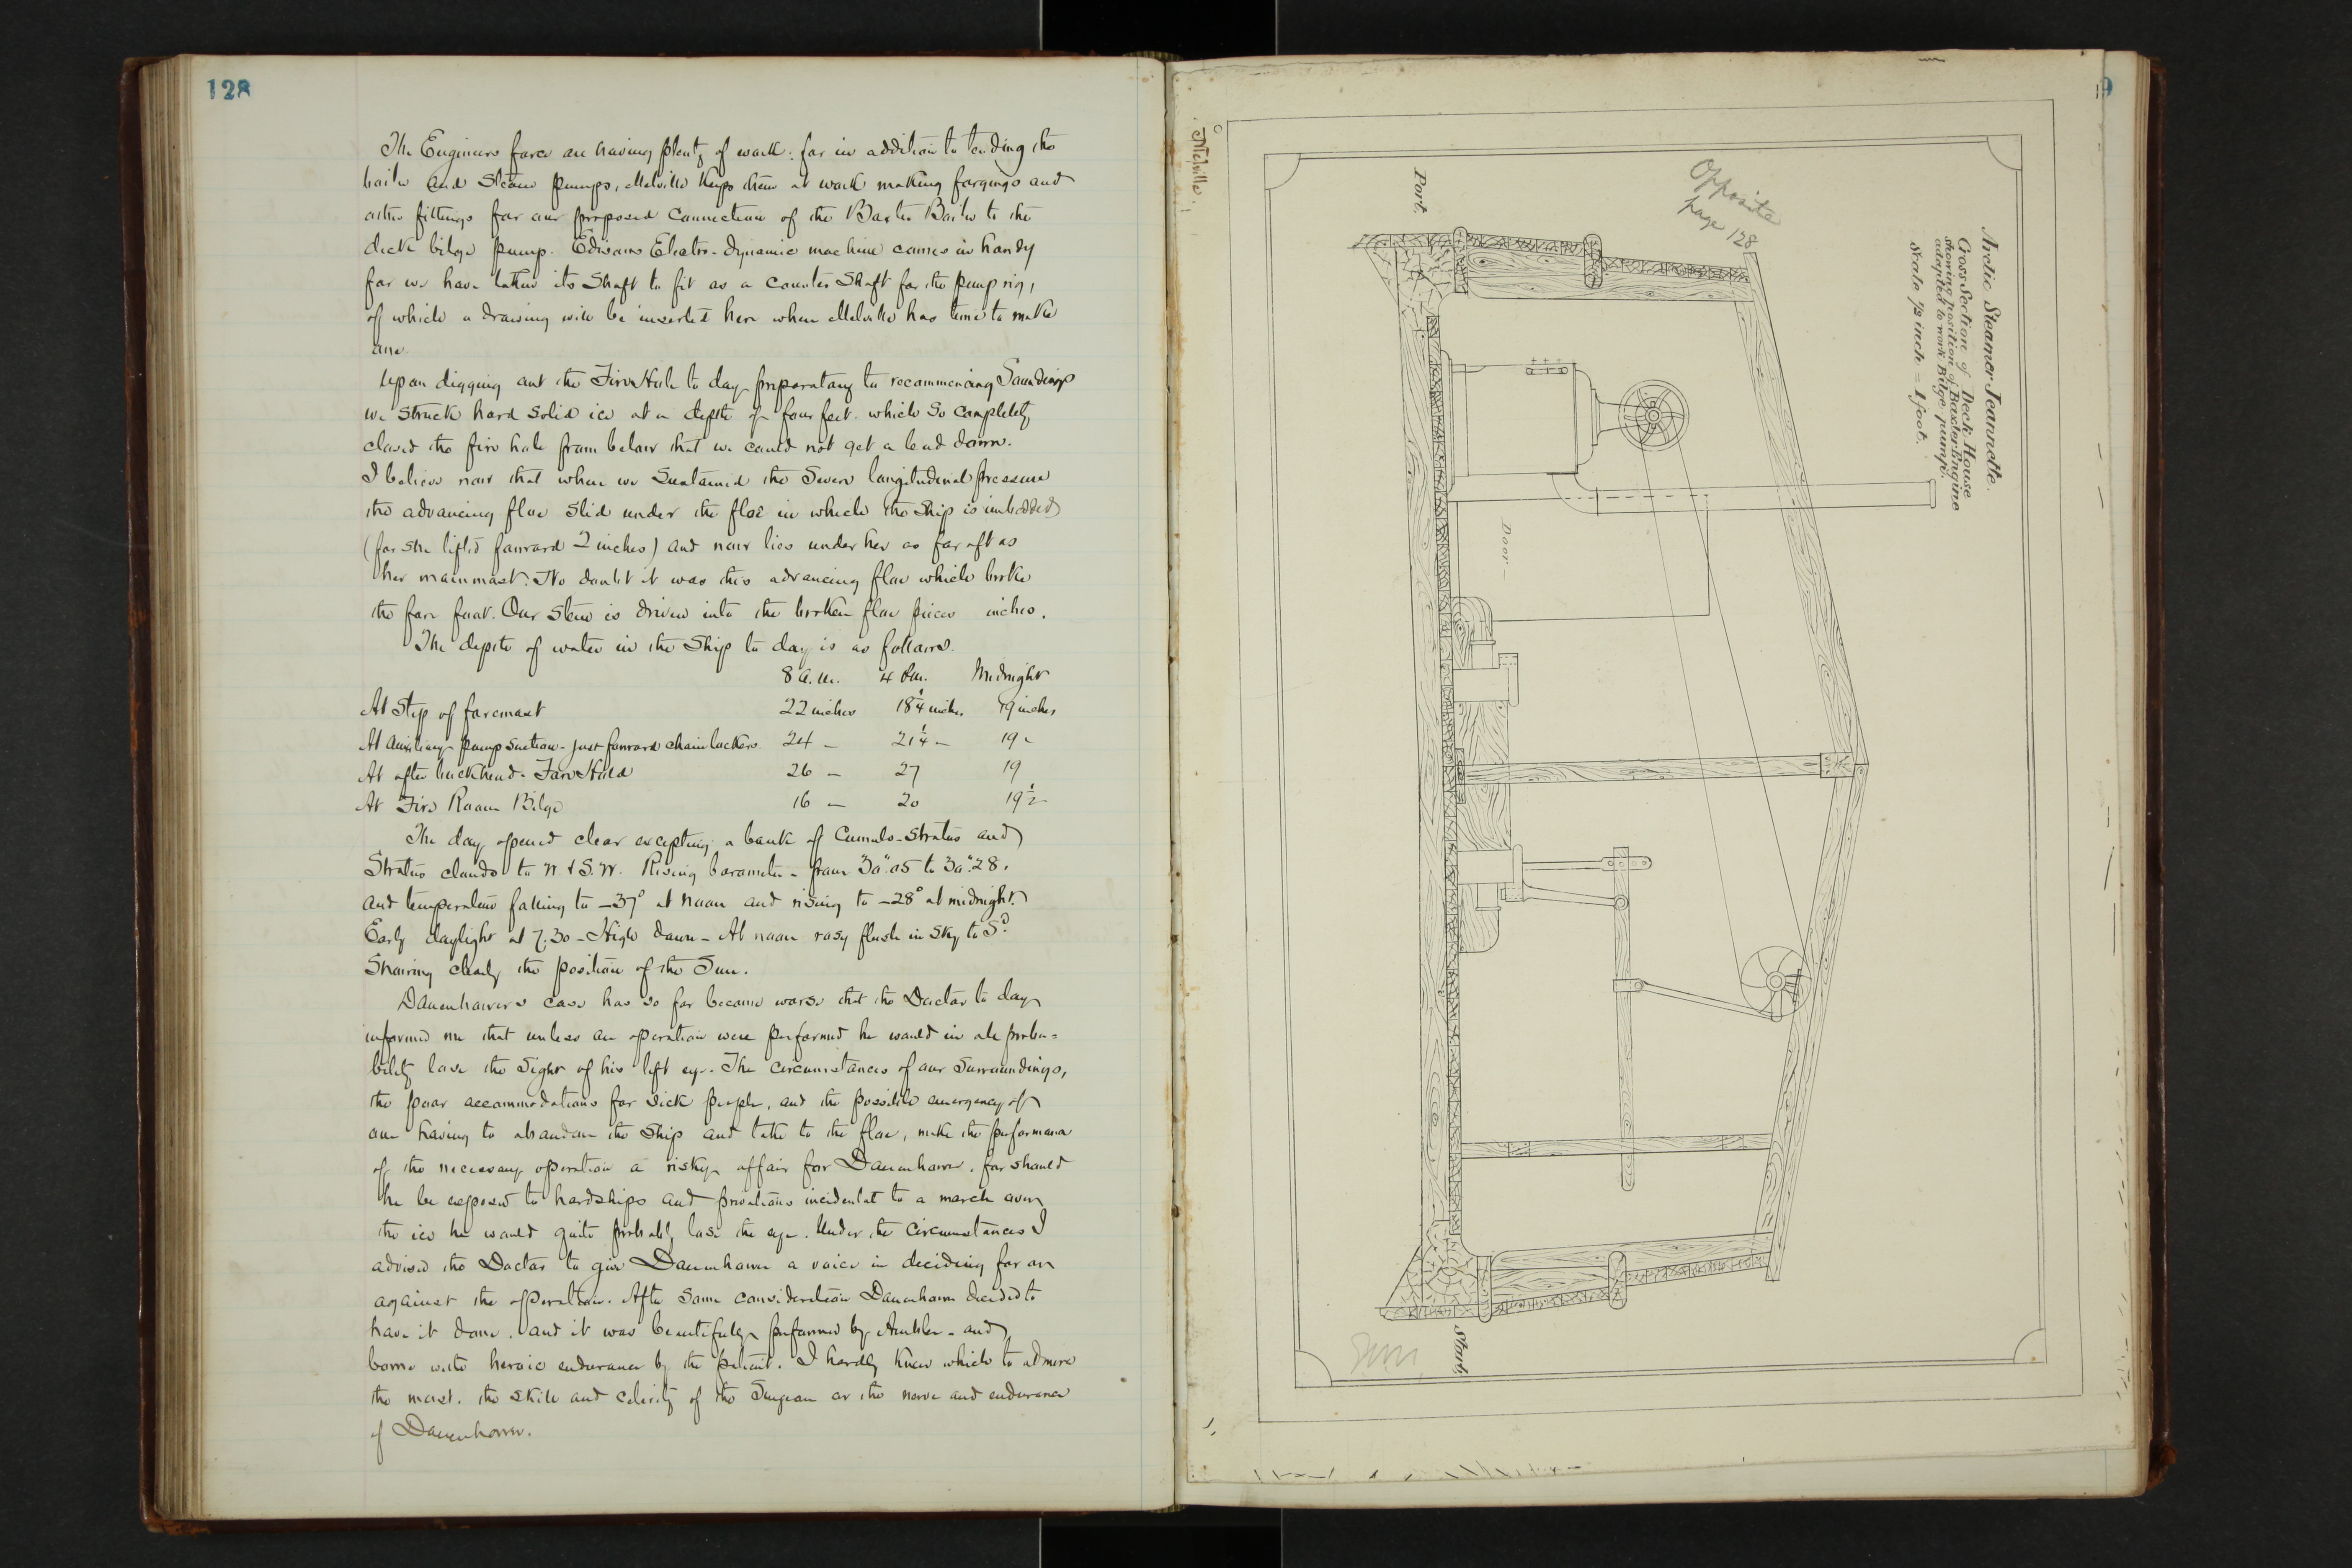 128
The Engineers force are having plenty of work: for in addition to tending the
boiler and Steam pumps, Melville keeps them at work making forgings and
other fittings for our proposed connection of the Baxter Boiler to the
deck bilge pump. Edisons Electro-dynamic machine comes in handy
for we have taken its Shaft to fit as a counter Shaft for the pump rig,
of which a drawing will be inserted here when Melville has time to make
one.
Upon digging out the Fire Hole to day preparatory to recommencing Soundings
we struck hard solid ice at a depth of four feet which so completely
closed the fire hole from below that we could not get a lead down.
I believe now that when we Sustained the Severe longitudinal pressure
the advancing floe slid under the floe in which the Ship is imbedded
(for she lifted forward 2 inches) and now lies under her as far aft as
her mainmast. No doubt it was this advancing floe which broke
the fore foot. Our stem is driven into the broken floe pieces inches.
The depth of water in the Ship to day is as follows.
8 a.m. 4 P.m. Midnight
At Step of foremast 22 inches 18¼ inches 19 inches
At Auxiliary pump Suction - just forward chain lockers 24 — 21¼ — 19 -
At after bulkhead - Fore Hold 26 — 27 19
At Fire Room Bilge 16 — 20 19½
The day opened clear excepting a bank of Cumulo-Stratus and
Stratus clouds to N & S.W. Rising barometer - from 30".05 to 30".28.
and temperature falling to -37° at noon and rising to -28° at midnight.
Early daylight at 7.30 - High dawn - At noon rosy flush in Sky to S.d
Showing clearly the position of the Sun.
Danenhowers case has so far become worse that the Doctor to day
informed me that unless an operation were performed he would in all proba=
bility lose the Sight of his left eye. The circumstances of our Surroundings,
the poor accommodations for sick people, and the possible emergency of
our having to abandon the Ship and take to the floe, make the performance
of the necessary operation a risky affair for Danenhower. for should
he be exposed to hardships and privations incidental to a march over
the ice he would quite probably lose the eye. Under the circumstances I
advised the Doctor to give Danenhower a voice in deciding for or
against the operation. After Some consideration Danenhower decided to
have it done. and it was beautifully performed by Ambler - and
borne with heroic endurance by the patient. I hardly know which to admire
the most. the skill and celerity of the Surgeon or the nerve and endurance
of Danenhower.
Melville.
9
Opposite
page 128
Arctic Steamer Jeannette.
Cross Section of Deck House
showing position of Baxter Engine
adapted to work Bilge pump.
Scale 1/2 inch = 1 foot.
Port.
Door
Starb.